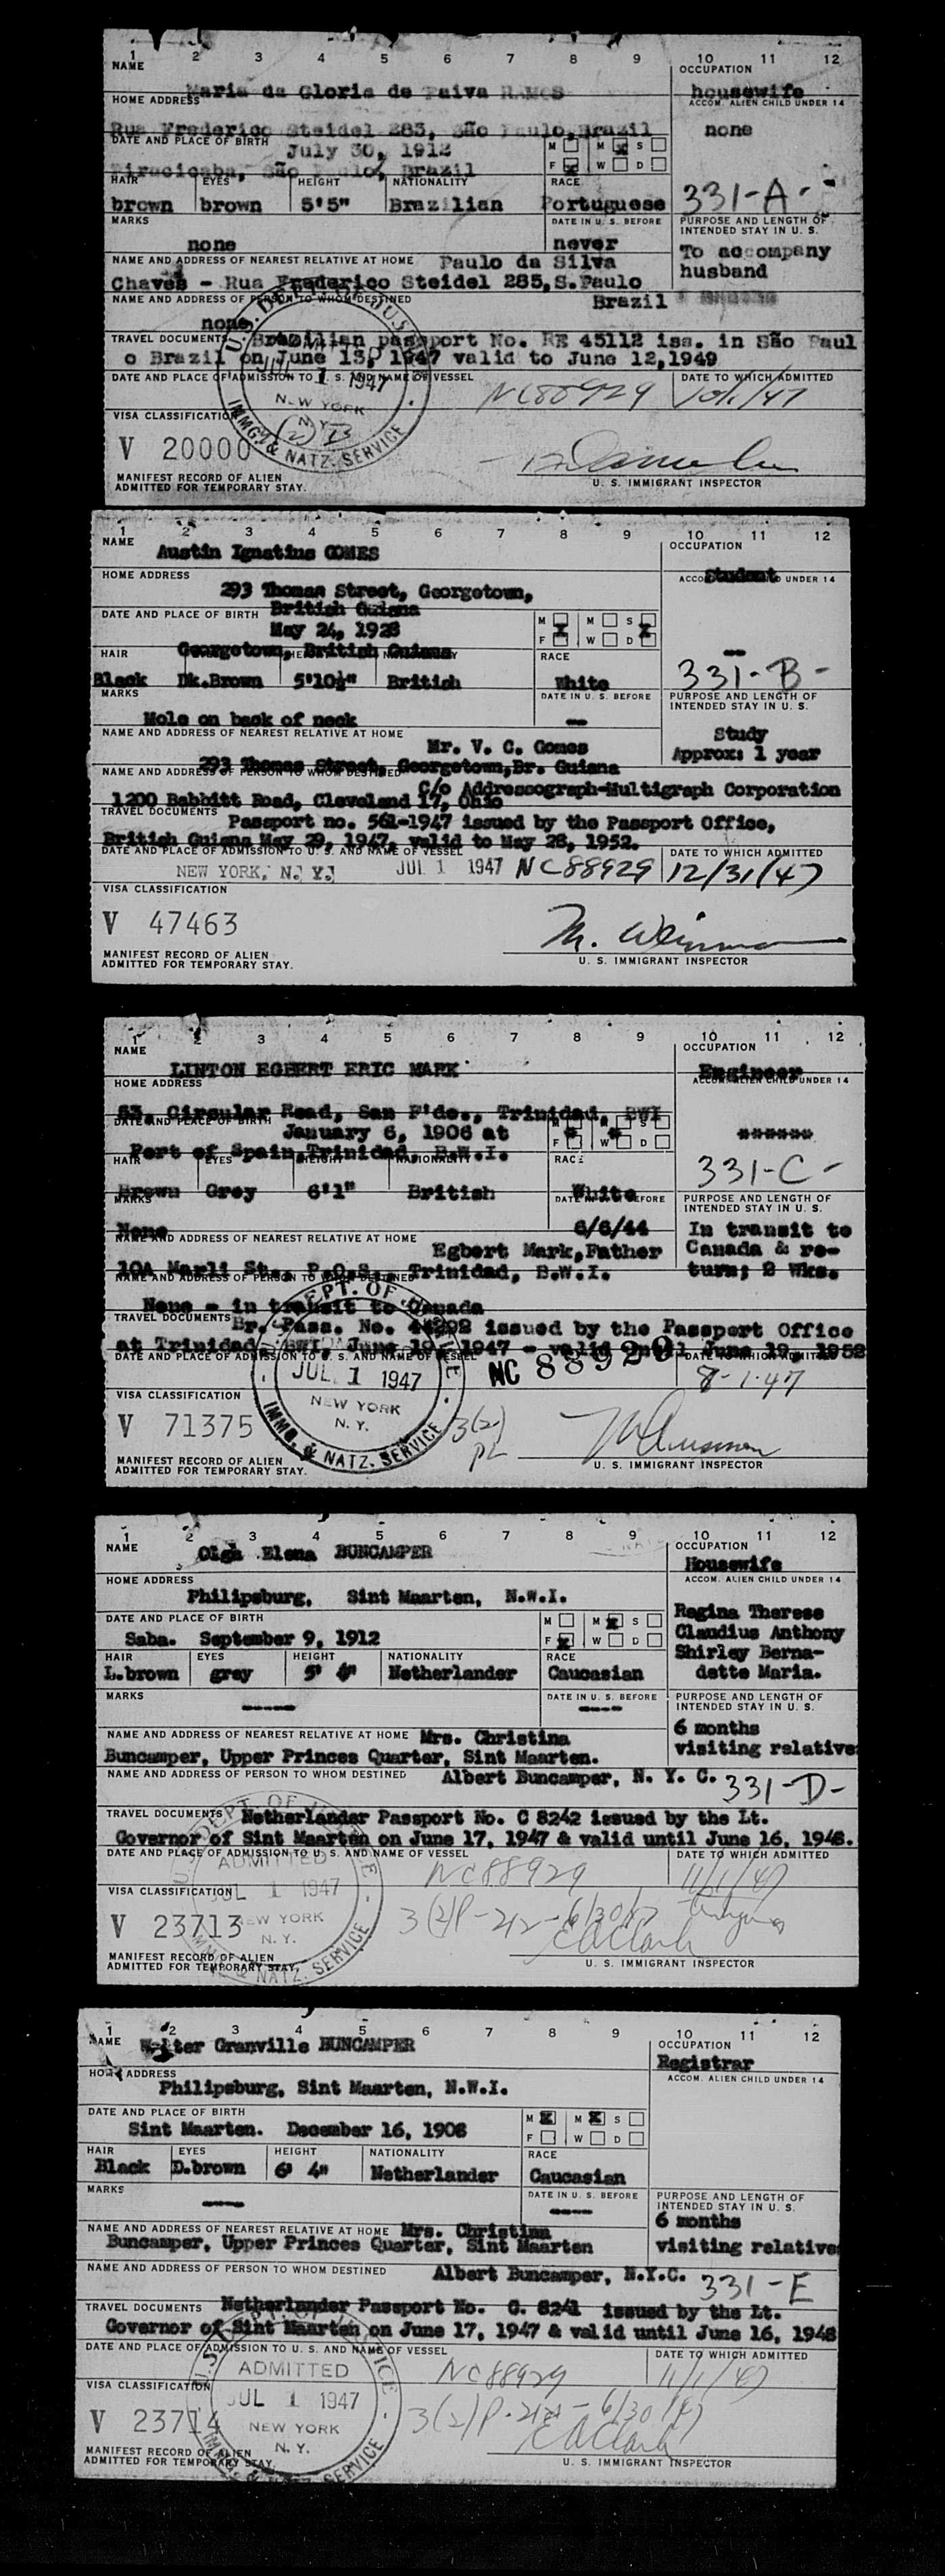 1 2 3 4 5 6 7 8 9 10 11 12
NAME OCCUPATION
Maria da Gloria de Paiva RAMOS housewife
HOME ADDRESS ACCOM. ALIEN CHILD UNDER 14
Rua Frederico Steidel 285, São Paulo, Brazil none
DATE AND PLACE OF BIRTH M M S
July 30, 1912 F W D
Piracicaba, São Paulo, Brazil
HAIR EYES HEIGHT NATIONALITY RACE
brown brown 5'5" Brazilian Portuguese 331-A-
MARKS DATE IN U. S. BEFORE PURPOSE AND LENGTH OF INTENDED STAY IN U. S.
none never
NAME AND ADDRESS OF NEAREST RELATIVE AT HOME Paulo da Silva To accompany
Chaves - Rua Frederico Steidel 285, S.Paulo husband
NAME AND ADDRESS OF PERSON TO WHOM DESTINED Brazil
none
TRAVEL DOCUMENTS Brazilian passport No. RE 45112 iss. in São Paul
o Brazil on June 13, 1947 valid to June 12,1949
DATE AND PLACE OF ADMISSION TO U. S. AND NAME OF VESSEL DATE TO WHICH ADMITTED
1 1947 NC88929 10/1/47
NEW YORK
N. Y.
IMMG. & NATZ. SERVICE
VISA CLASSIFICATION
V 20000
MANIFEST RECORD OF ALIEN
ADMITTED FOR TEMPORARY STAY. U. S. IMMIGRANT INSPECTOR
1 2 3 4 5 6 7 8 9 10 11 12
NAME OCCUPATION
Austin Ignatius GOMES Student
HOME ADDRESS ACCOM. ALIEN CHILD UNDER 14
293 Thomas Street, Georgetown,
British Guiana
DATE AND PLACE OF BIRTH M M S
May 24, 1928 F W D
Georgetown, British Guiana --
HAIR EYES HEIGHT NATIONALITY RACE
Black Dk.Brown 5'10½" British White 331-B-
MARKS DATE IN U. S. BEFORE PURPOSE AND LENGTH OF INTENDED STAY IN U. S.
Mole on back of neck -- Study
NAME AND ADDRESS OF NEAREST RELATIVE AT HOME Approx: 1 year
Mr. V. C. Gomes
293 Thomas Street, Georgetown,Br. Guiana
NAME AND ADDRESS OF PERSON TO WHOM DESTINED
C/o Addressograph-Multigraph Corporation
1200 Babbitt Road, Cleveland 17, Ohio
TRAVEL DOCUMENTS Passport no. 561-1947 issued by the Passport Office,
British Guiana May 29, 1947, valid to May 28, 1952.
DATE AND PLACE OF ADMISSION TO U. S. AND NAME OF VESSEL DATE TO WHICH ADMITTED
NEW YORK, N. Y. JUL 1 1947 NC88929 12/31/47
VISA CLASSIFICATION
V 47463
M. Weinman
MANIFEST RECORD OF ALIEN
ADMITTED FOR TEMPORARY STAY. U. S. IMMIGRANT INSPECTOR
1 2 3 4 5 6 7 8 9 10 11 12
NAME OCCUPATION
LINTON EGBERT ERIC MARK Engineer
HOME ADDRESS ACCOM. ALIEN CHILD UNDER 14
63, Circular Road, San F'do., Trinidad, BWI
DATE AND PLACE OF BIRTH M M S
January 6, 1906 at ****** F W D
Port of Spain,Trinidad, B.W.I.
HAIR EYES HEIGHT NATIONALITY RACE
Brown Grey 6'1" British White 331-C-
MARKS DATE IN U. S. BEFORE PURPOSE AND LENGTH OF INTENDED STAY IN U. S.
None 6/6/44 In transit to
NAME AND ADDRESS OF NEAREST RELATIVE AT HOME Canada & re-
Egbert Mark,Father turn; 2 Wks.
10A Marli St., P.O.S., Trinidad, B.W.I.
NAME AND ADDRESS OF PERSON TO WHOM DESTINED
None - in transit to Canada
TRAVEL DOCUMENTS Br. Pass. No. 44292 issued by the Passport Office
at Trinidad, BWI, June 19, 1947 - valid until June 19, 1952
DATE AND PLACE OF ADMISSION TO U. S. AND NAME OF VESSEL DATE TO WHICH ADMITTED
JUL 1 1947 NC 88929 8-1-47
NEW YORK
N. Y.
IMMG. & NATZ. SERVICE
VISA CLASSIFICATION
V 71375 3(2)
MANIFEST RECORD OF ALIEN
ADMITTED FOR TEMPORARY STAY. U. S. IMMIGRANT INSPECTOR
1 2 3 4 5 6 7 8 9 10 11 12
NAME OCCUPATION
Olga Elena BUNCAMPER Housewife
HOME ADDRESS ACCOM. ALIEN CHILD UNDER 14
Philipsburg, Sint Maarten, N.W.I. Regina Therese
DATE AND PLACE OF BIRTH M M S Claudius Anthony
Saba. September 9, 1912 F W D Shirley Berna-
HAIR EYES HEIGHT NATIONALITY RACE dette Maria.
L.brown grey 5' 4" Netherlander Caucasian
MARKS DATE IN U. S. BEFORE PURPOSE AND LENGTH OF INTENDED STAY IN U. S.
----- ---- 6 months
NAME AND ADDRESS OF NEAREST RELATIVE AT HOME Mrs. Christina visiting relative
Buncamper, Upper Princes Quarter, Sint Maarten.
NAME AND ADDRESS OF PERSON TO WHOM DESTINED Albert Buncamper, N. Y. C. 331-D-
TRAVEL DOCUMENTS Netherlander Passport No. C 8242 issued by the Lt.
Governor of Sint Maarten on June 17, 1947 & valid until June 16, 1948.
DATE AND PLACE OF ADMISSION TO U. S. AND NAME OF VESSEL DATE TO WHICH ADMITTED
ADMITTED NC88929 11/1/47
JUL 1 1947
NEW YORK
N. Y.
VISA CLASSIFICATION
V 23713 3(2)P-212-6/30/47
EAClark
MANIFEST RECORD OF ALIEN
ADMITTED FOR TEMPORARY STAY. U. S. IMMIGRANT INSPECTOR
1 2 3 4 5 6 7 8 9 10 11 12
NAME Walter Granville BUNCAMPER OCCUPATION
Registrar
HOME ADDRESS ACCOM. ALIEN CHILD UNDER 14
Philipsburg, Sint Maarten, N.W.I.
DATE AND PLACE OF BIRTH M M S
Sint Maarten. December 16, 1908 F W D
HAIR EYES HEIGHT NATIONALITY RACE
Black D.brown 6' 4" Netherlander Caucasian
MARKS DATE IN U. S. BEFORE PURPOSE AND LENGTH OF INTENDED STAY IN U. S.
---- ---- 6 months
NAME AND ADDRESS OF NEAREST RELATIVE AT HOME Mrs. Christina visiting relative
Buncamper, Upper Princes Quarter, Sint Maarten
NAME AND ADDRESS OF PERSON TO WHOM DESTINED Albert Buncamper, N.Y.C. 331-E
TRAVEL DOCUMENTS Netherlander Passport No. C. 8241 issued by the Lt.
Governor of Sint Maarten on June 17, 1947 & valid until June 16, 1948
DATE AND PLACE OF ADMISSION TO U. S. AND NAME OF VESSEL DATE TO WHICH ADMITTED
ADMITTED NC88929 11/1/47
JUL 1 1947
NEW YORK
N. Y.
VISA CLASSIFICATION
V 23714 3(2)P-212-6/30/47
EAClark
MANIFEST RECORD OF ALIEN
ADMITTED FOR TEMPORARY STAY. U. S. IMMIGRANT INSPECTOR